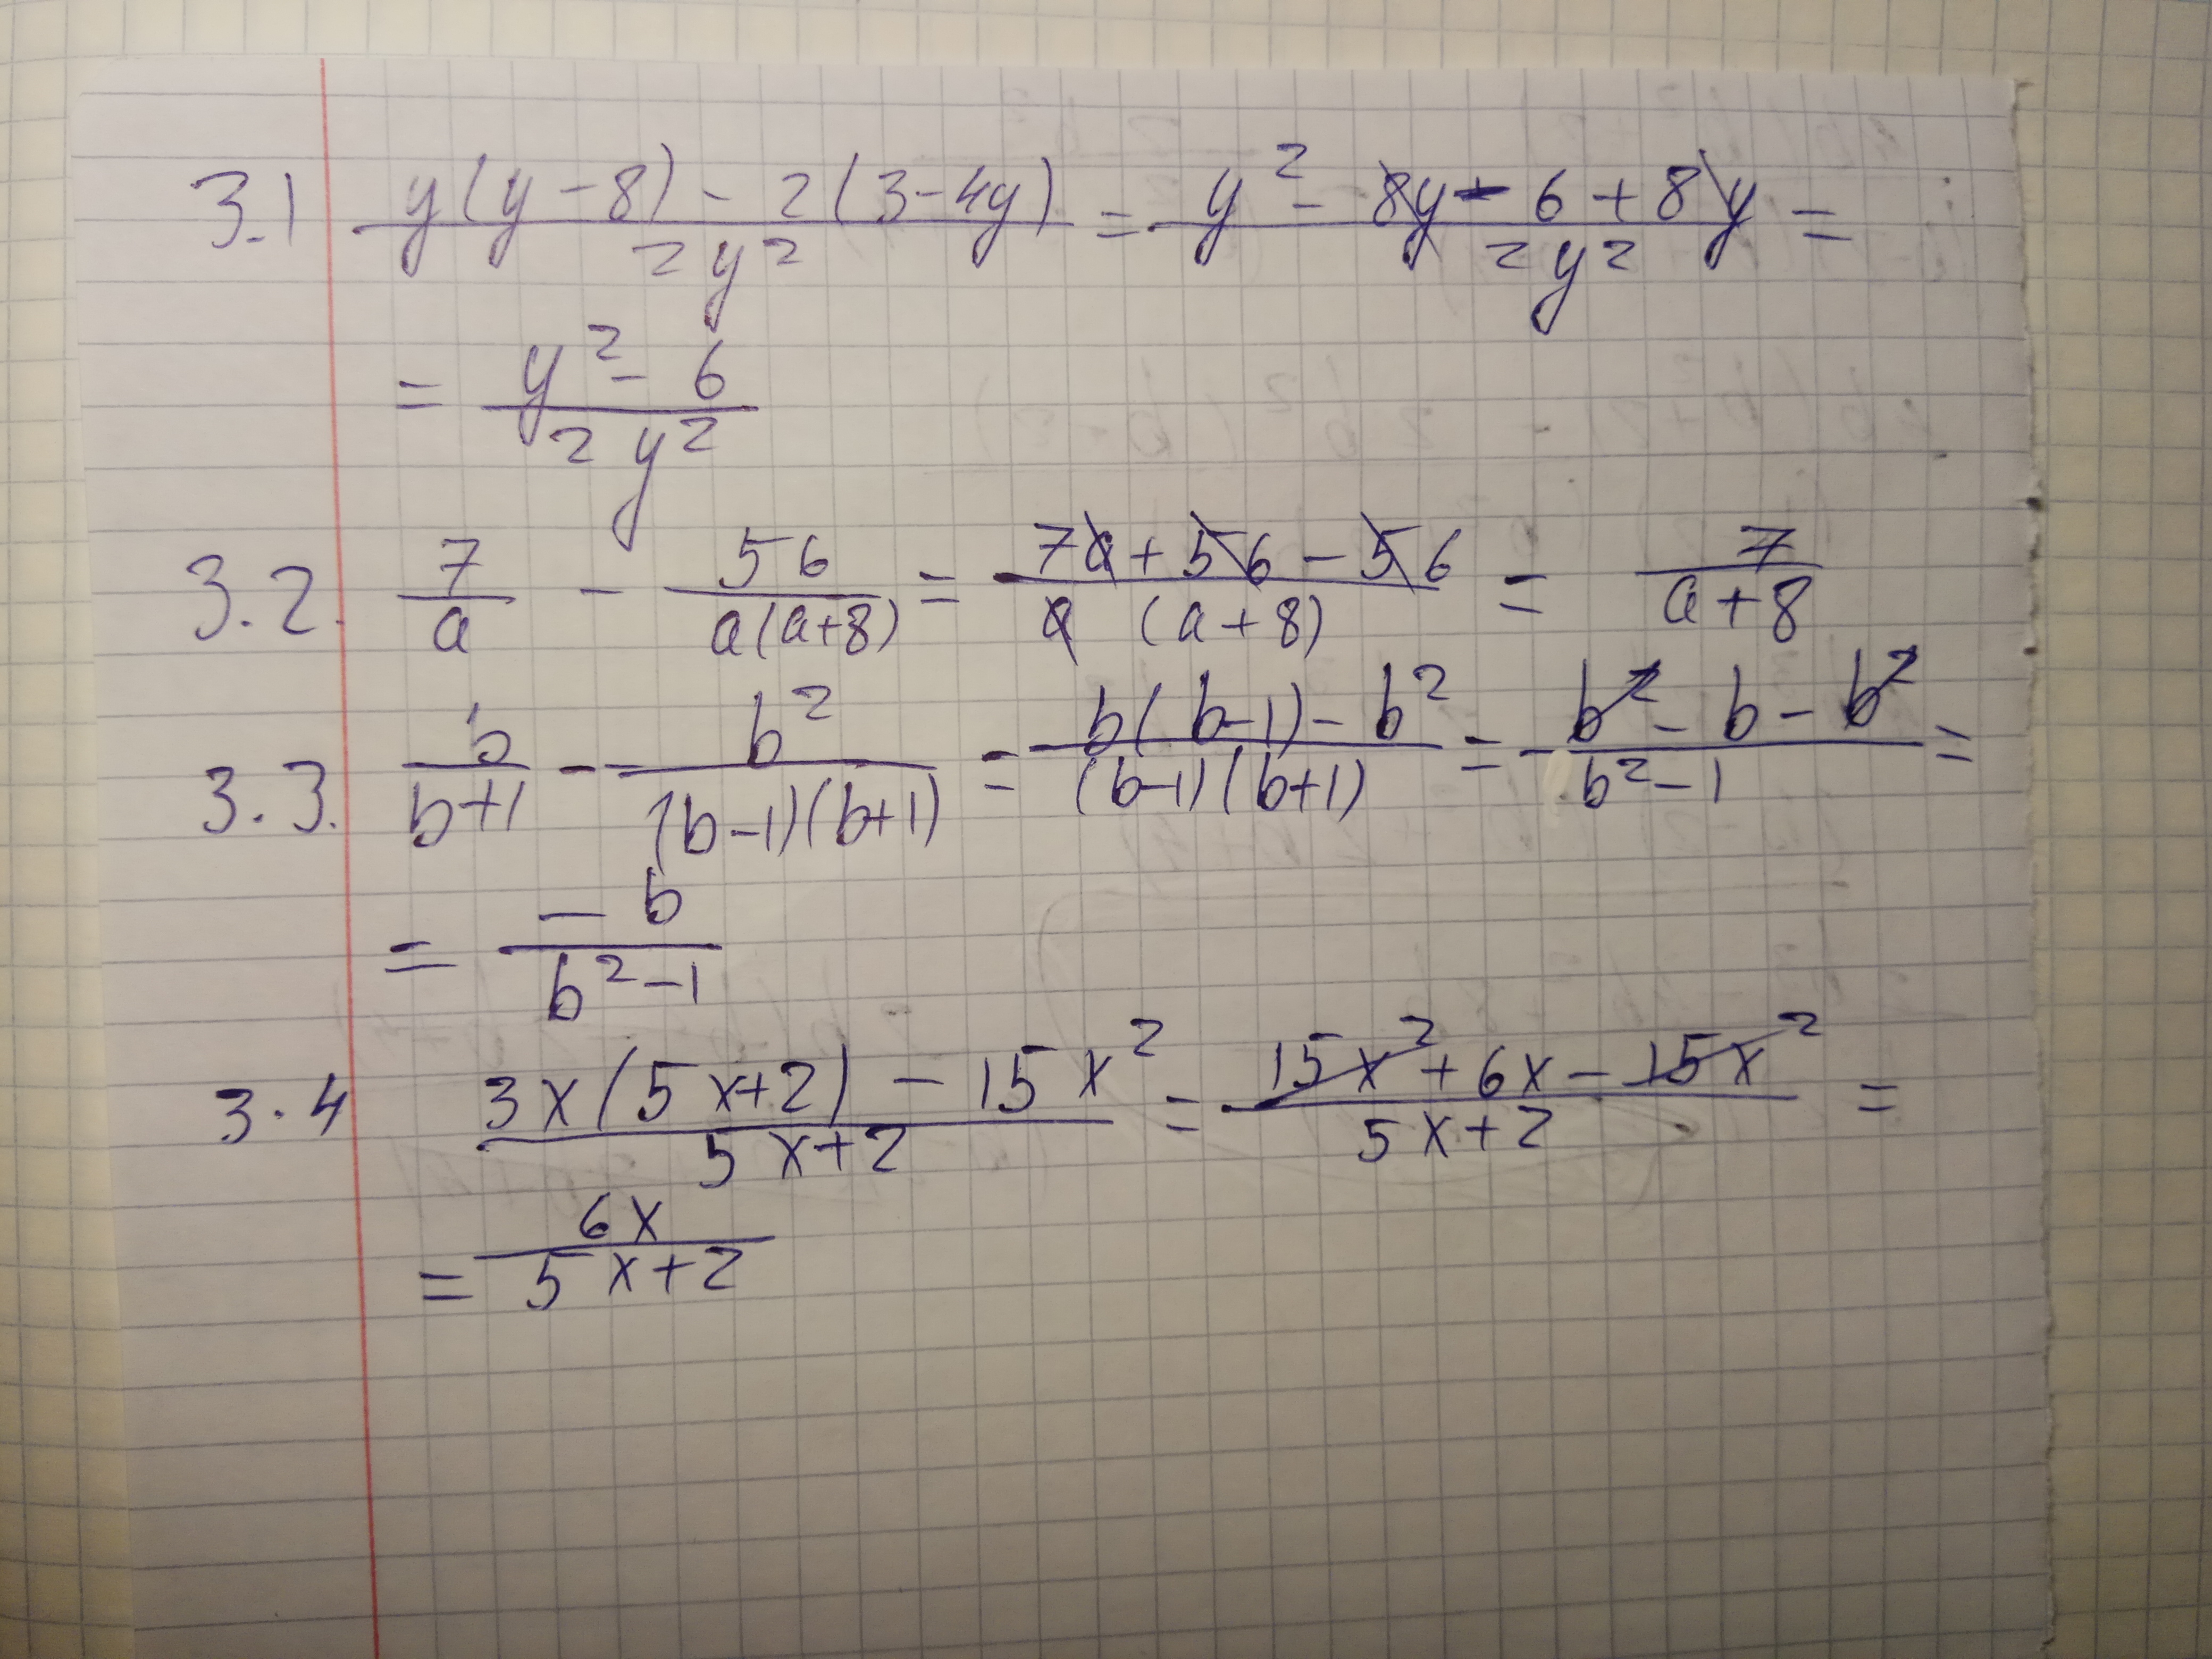 3.1 \frac{y(y-8)-2(3-4y)}{2y^2} = \frac{y^2-8y-6+8y}{2y^2} =
= \frac{y^2-6}{2y^2}
3.2. \frac{7}{a} - \frac{56}{a(a+8)} = \frac{7a+56-56}{a(a+8)} = \frac{7}{a+8}
3.3. \frac{b}{b+1} - \frac{b^2}{(b-1)(b+1)} = \frac{b(b-1)-b^2}{(b-1)(b+1)} = \frac{b^2-b-b^2}{b^2-1} =
= \frac{-b}{b^2-1}
3.4 \frac{3x(5x+2)-15x^2}{5x+2} = \frac{15x^2+6x-15x^2}{5x+2} =
= \frac{6x}{5x+2}